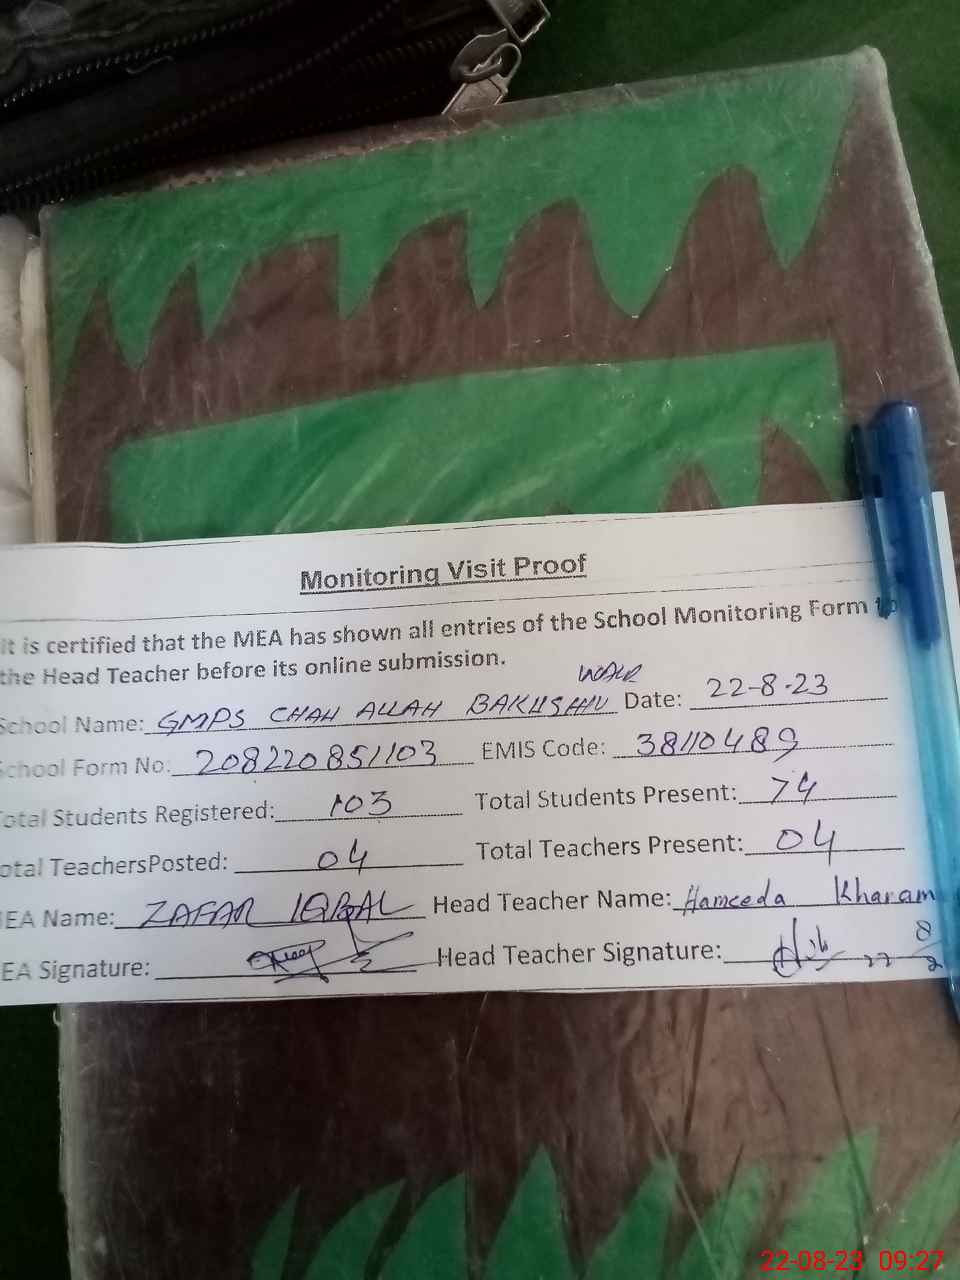 Monitoring Visit Proof
it is certified that the MEA has shown all entries of the School Monitoring Form to
the Head Teacher before its online submission.
School Name: GMPS CHAH ALLAH BAKHSHW WALA Date: 22-8-23
School Form No: 208220851103 EMIS Code: 38110489
Total Students Registered: 103 Total Students Present: 74
otal TeachersPosted: 04 Total Teachers Present: 04
EA Name: ZAFAR IQBAL Head Teacher Name: Hameeda Kharam
EA Signature: Head Teacher Signature: 22 8
22-08-23 09:27